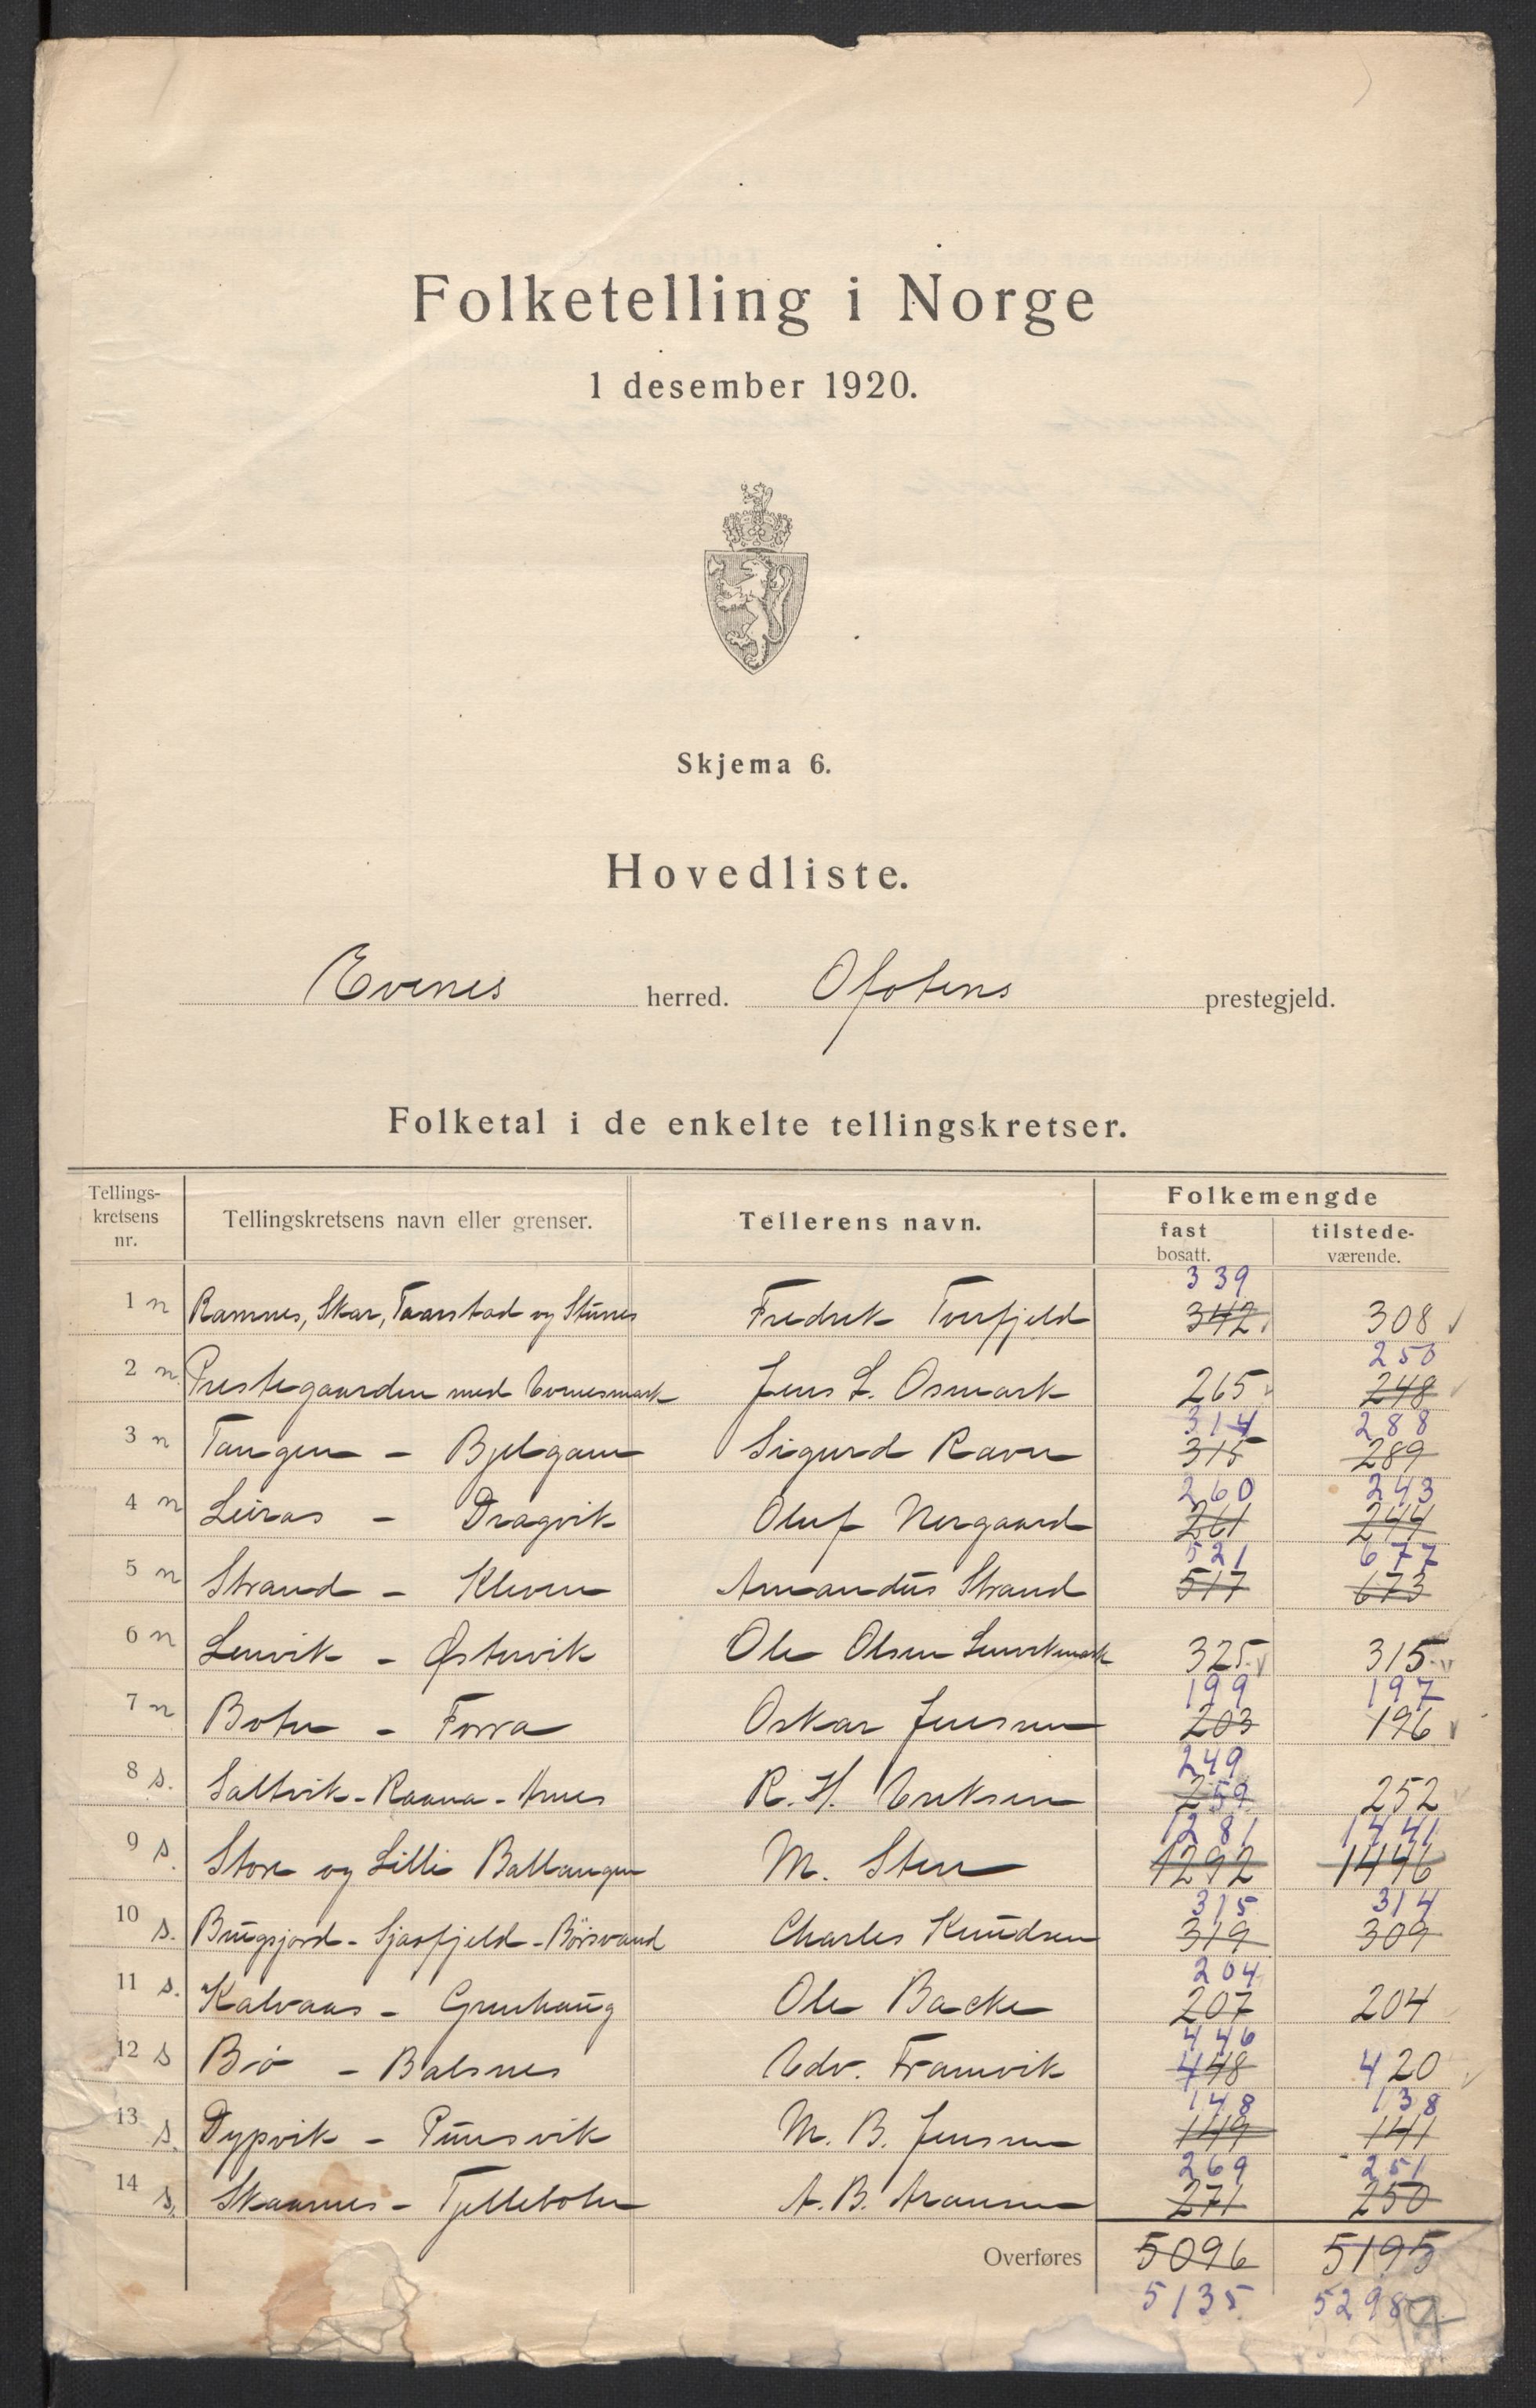 Folketelling i Norge
1 desember 1920.
Skjema 6.
Hovedliste.
Evenes herred. Ofotens prestegjeld.
Folketal i de enkelte tellingskretser.
Tellings-kretsens nr. Tellingskretsens navn eller grenser. Tellerens navn. Folkemengde
fast bosatt. tilstede-værende.
339
1 n Ramnes, Skar, Taarstad og Stunes Fredrik Tverfjeld 342 308
250
2 n. Prestegaarden med Evenesmark Jens L. Osmark 265 248
314 288
3 n Tangen - Bjelgam Sigurd Ravn 315 289
260 243
4 n Leiraas - Dragvik Oluf Nergaard 261 244
521 677
5 n Strand - Kleven Amandus Strand 517 673
6 n Lenvik - Østervik Ole Olsen Lenvikmark 325 315
199 197
7 n Botn - Forra Oskar Jensen 203 196
249
8 s. Saltvik - Raana - Arnes R. H. Eriksen 259 252
1281 1441
9 s. Store og Lille Ballangen M. Sten 1292 1446
315 314
10 s. Bugsjord - Sjaafjeld - Børsvand Charles Knudsen 319 309
204
11 s. Kalvaas - Grenhaug Ole Backe 207 204
446
12 s Bø - Balsnes Edv. Framvik 448 420
148 138
13 s. Dypvik - Punsvik M. B. Jensen 149 141
269 251
14 s. Skaarnes - Tjellebotn A. B. Aransen 271 250
Overføres 5096 5195
5135 5298